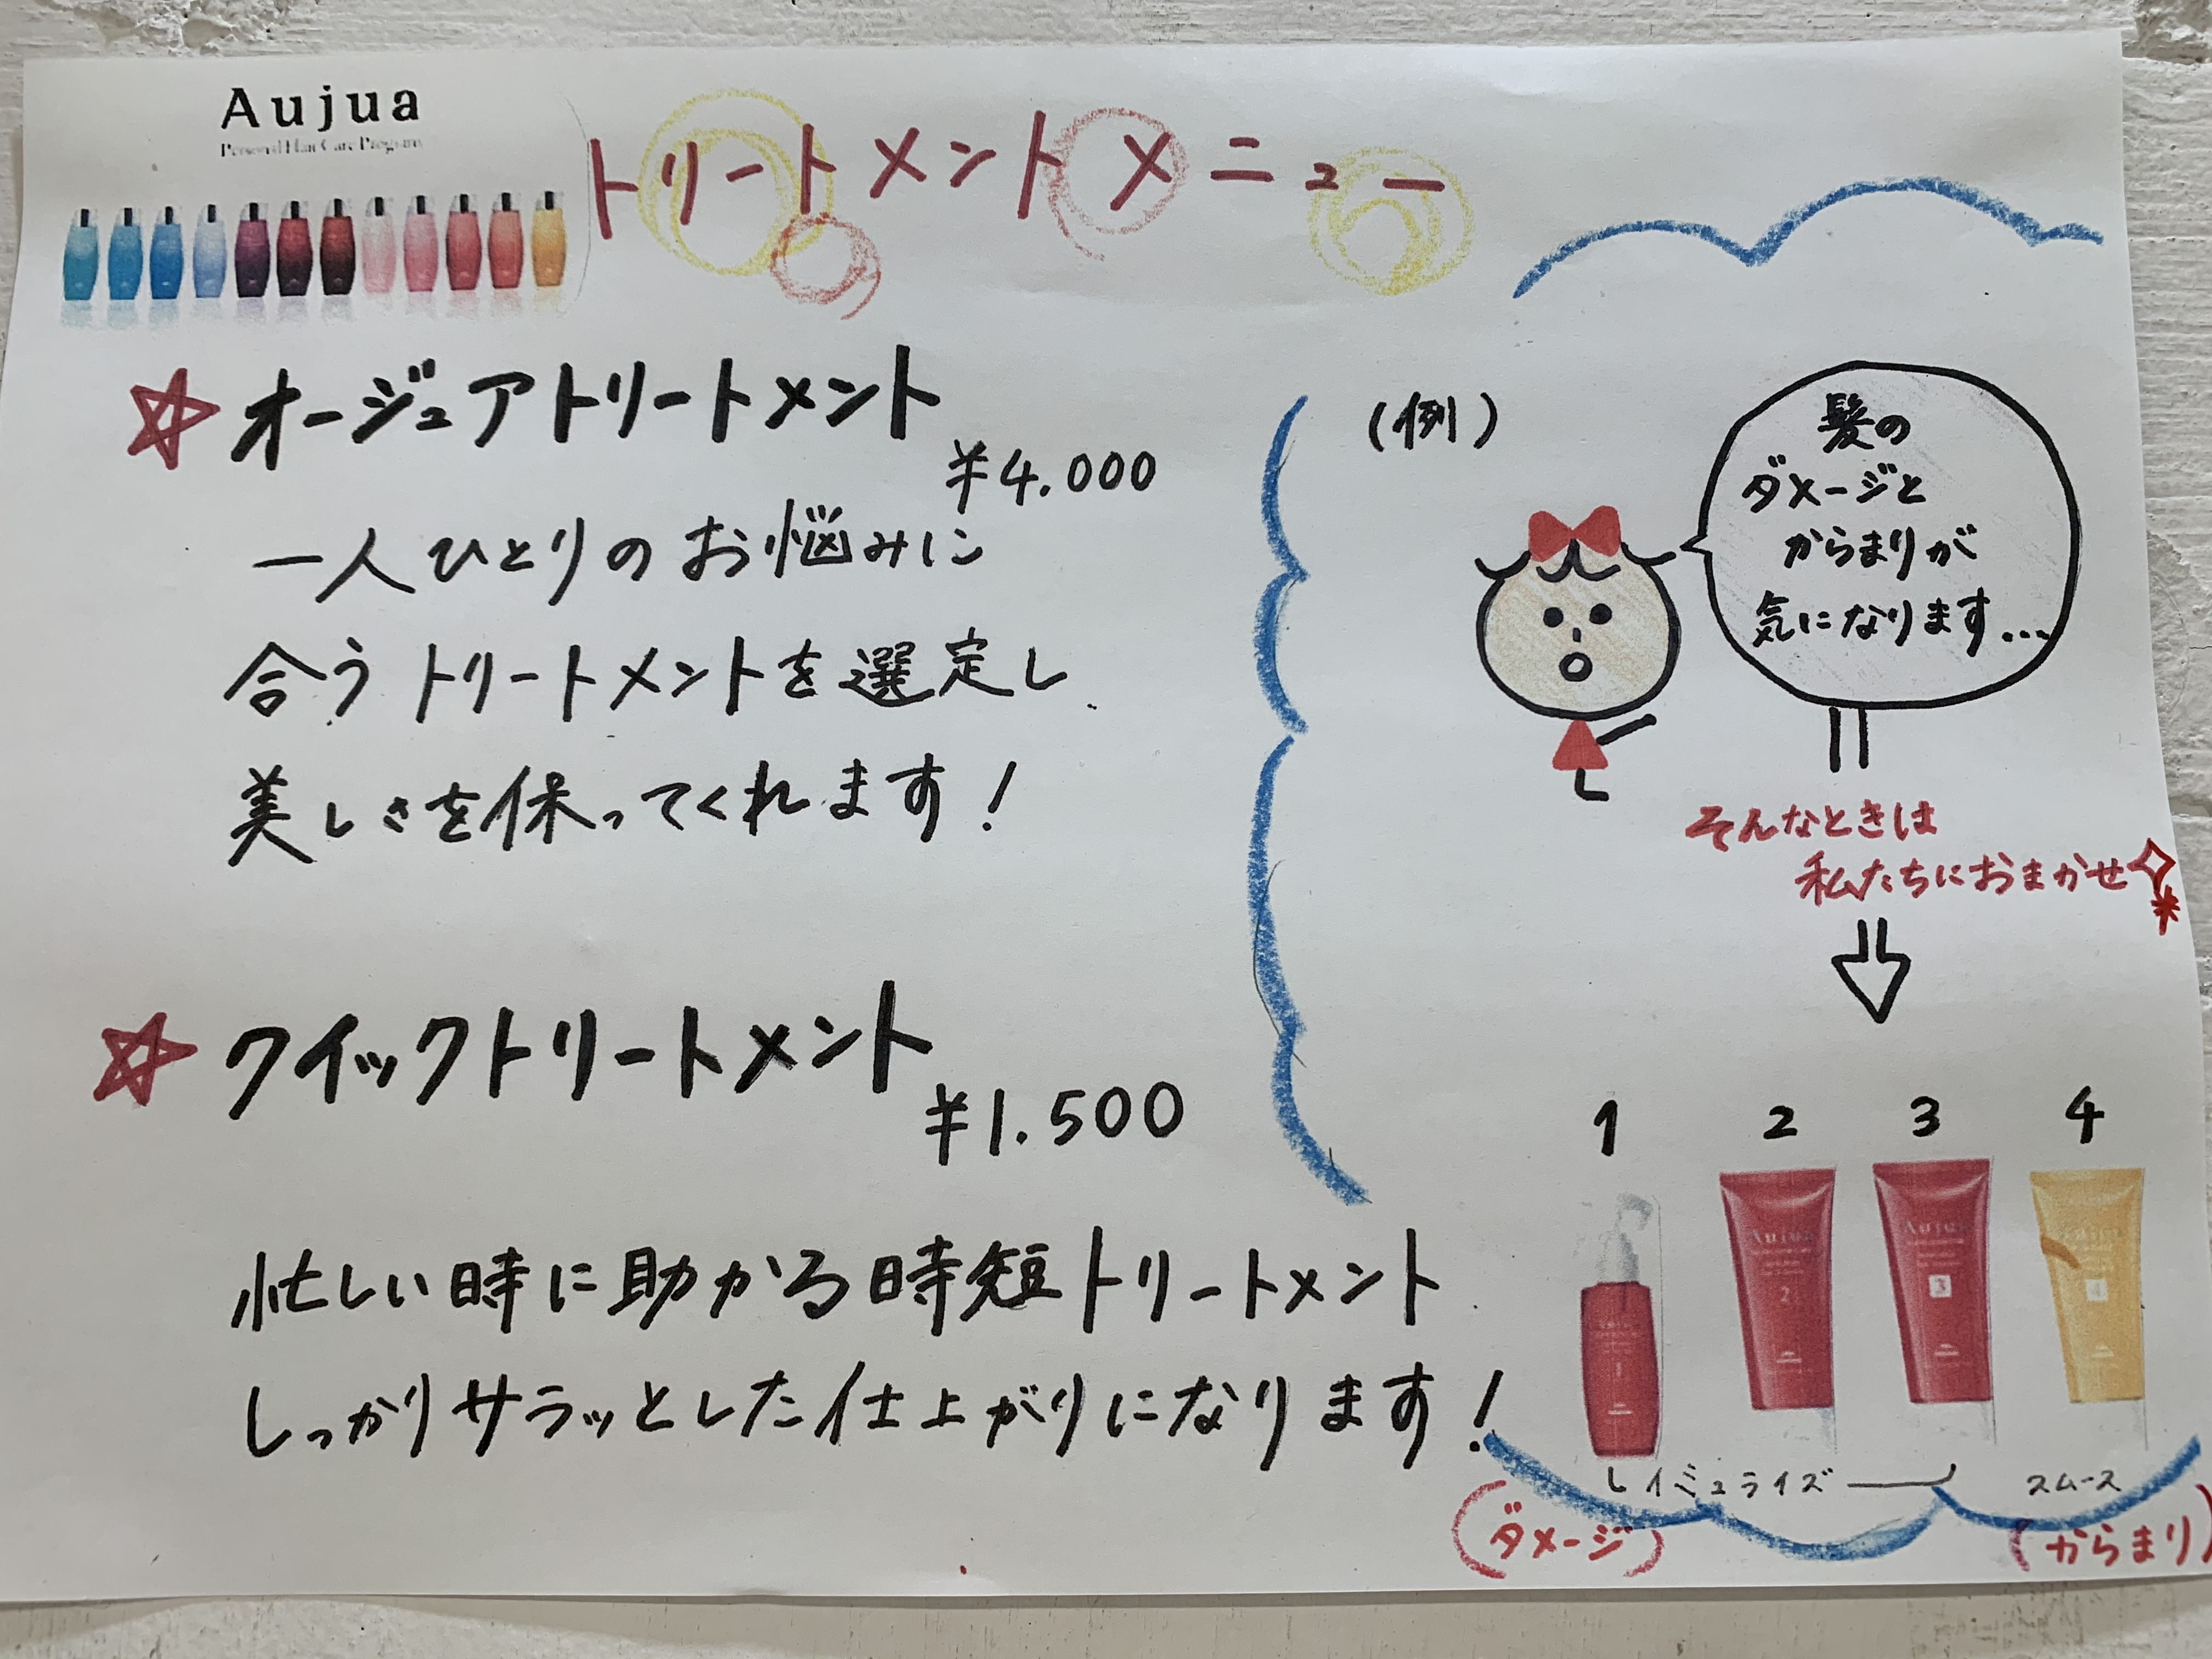 Aujua
Personal Hair Care Program
トリートメントメニュー
オージュアトリートメント
¥4.000
一人ひとりのお悩みに
合うトリートメントを選定し
美しさを保ってくれます！
クイックトリートメント
¥1.500
忙しい時に助かる時短トリートメント
しっかりサラッとした仕上がりになります！
（例）
髪の
ダメージと
からまりが
気になります...
そんなときは
私たちにおまかせ
1 2 3 4
Aujua
2
Aujua
3
4
イミュライズ
スムース
(ダメージ)
(からまり)